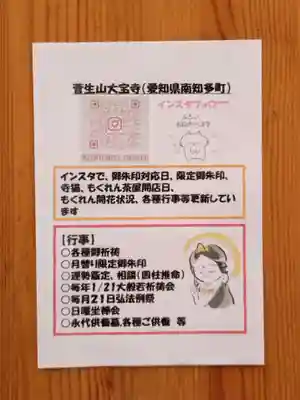 菅生山大宝寺(愛知県南知多町)
インスタフォロー
インスタで、御朱印対応日、限定御朱印、
寺猫、もくれん茶屋開店日、
もくれん開花状況、各種行事等更新しています
【行事】
○各種御祈祷
○月替り限定御朱印
○運勢鑑定、相談(四柱推命)
○毎年1/21大般若祈祷会
○毎月21日弘法例祭
○日曜坐禅会
○永代供養墓、各種ご供養 等